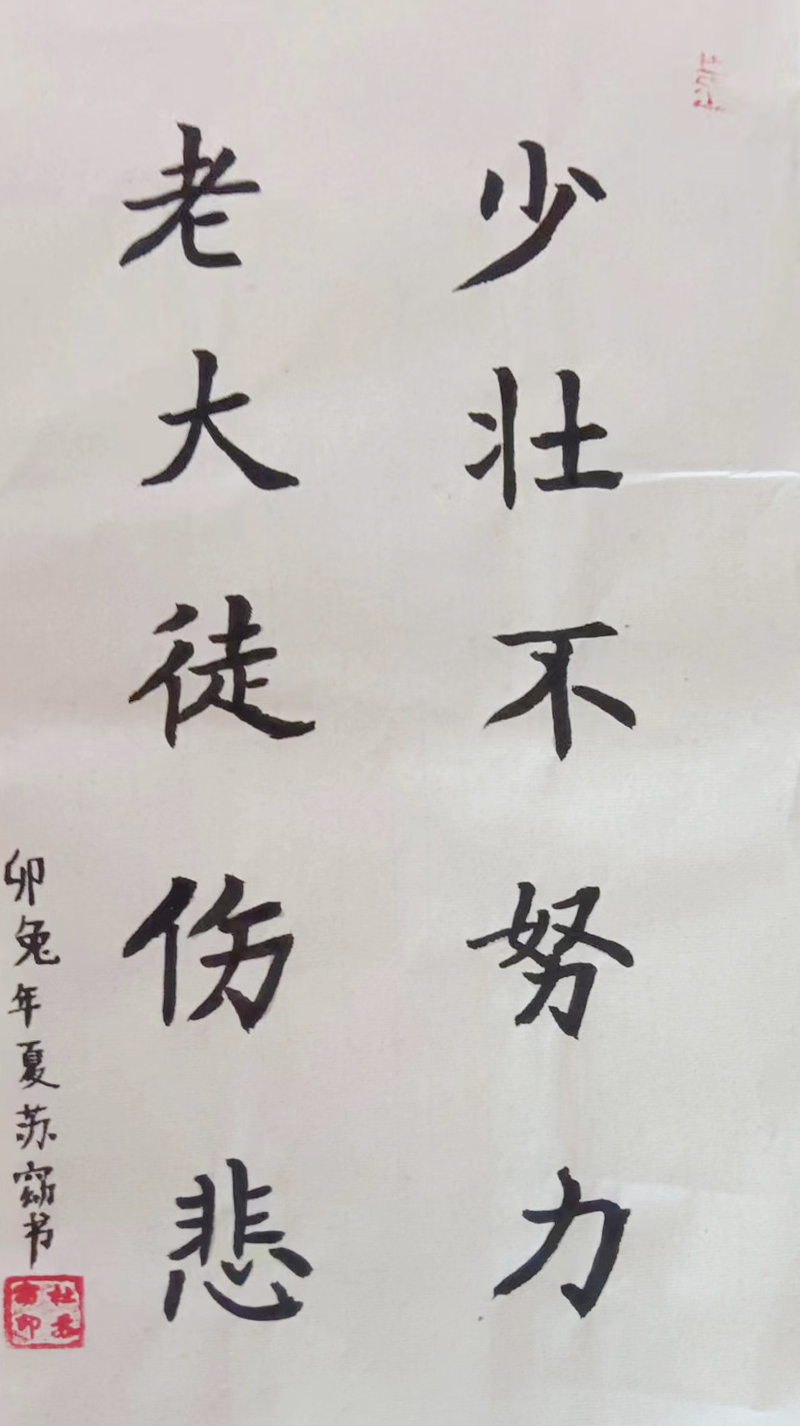 少壮不努力
老大徒伤悲
卯兔年夏苏窈书